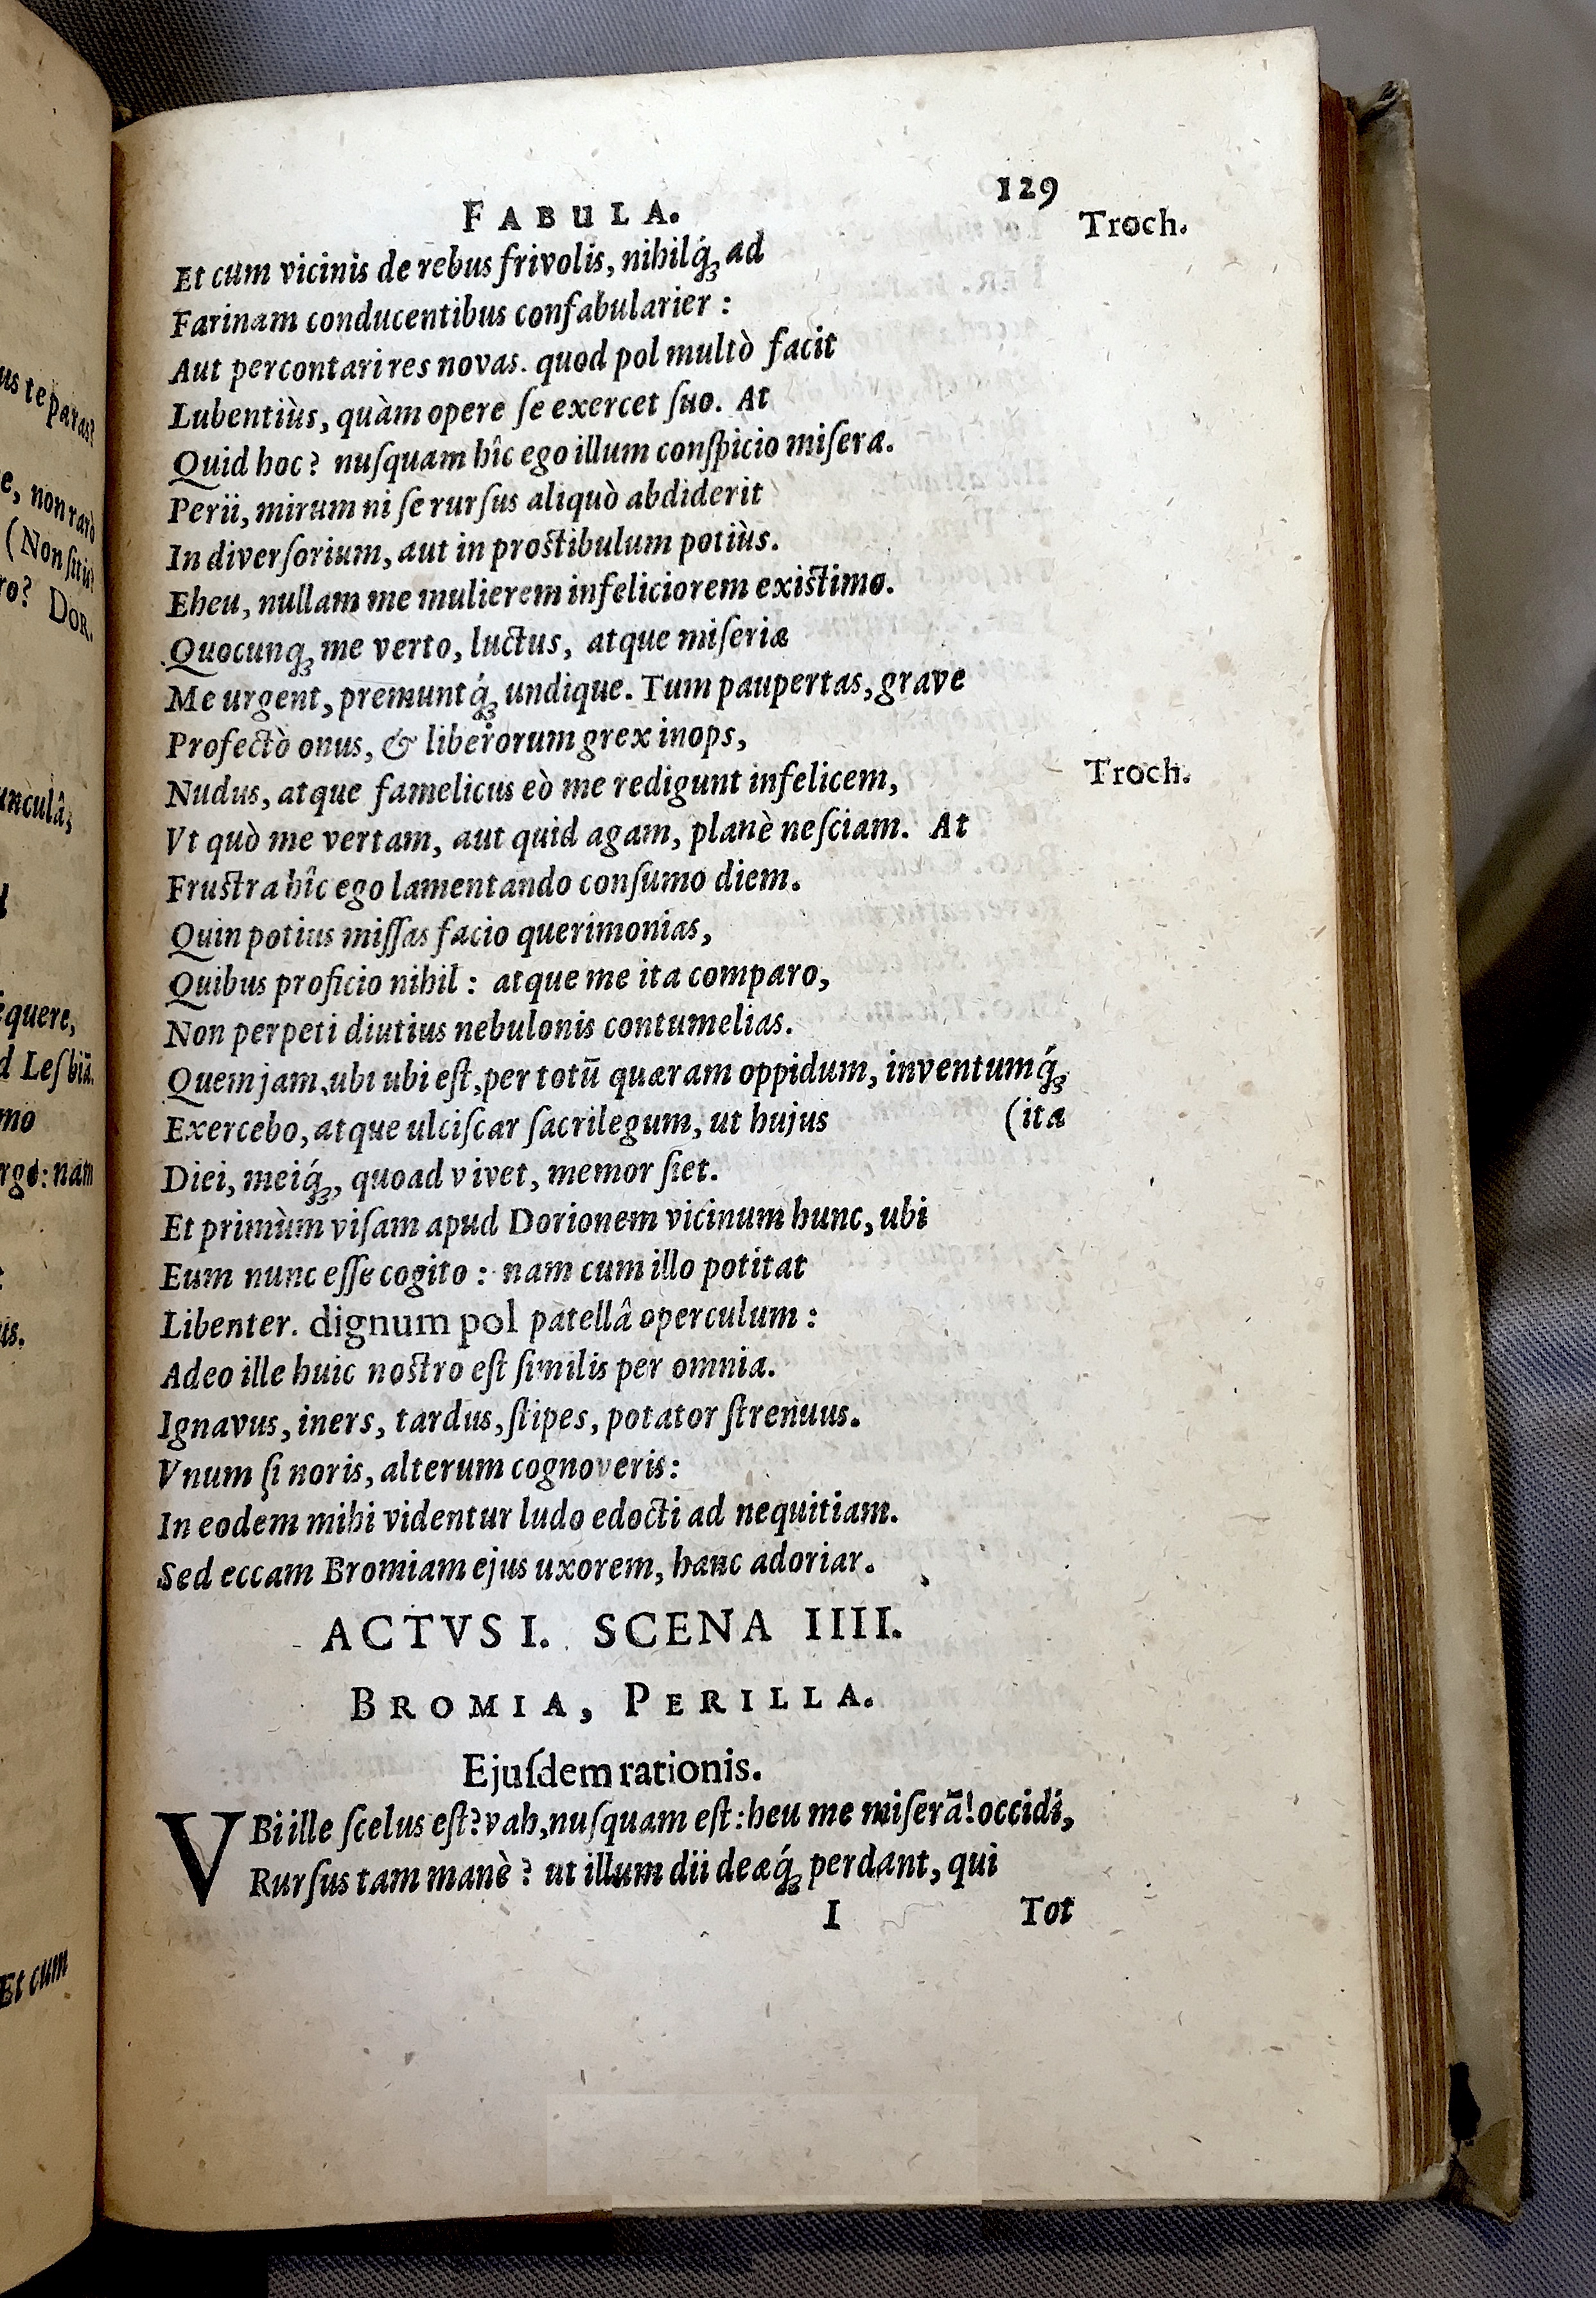 129
FABULA.
Troch.
Et cum vicinis de rebus frivolis, nihilq́ꝫ ad
Farinam conducentibus confabularier :
Aut percontari res novas. quod pol multò facit
Lubentiùs, quàm opere ſe exercet ſuo. At
Quid hoc? nuſquam hîc ego illum conſpicio miſera.
Perii, mirum ni ſe rurſus aliquò abdiderit
In diverſorium, aut in proſtibulum potiùs.
Eheu, nullam me mulierem infeliciorem exiſtimo.
Quocunqꝫ me verto, luctus, atque miſeriæ
Me urgent, premuntq́ꝫ undique. Tum paupertas, grave
Profectò onus, & liberorum grex inops,
Nudus, atque famelicus eò me redigunt infelicem,
Troch.
Vt quò me vertam, aut quid agam, planè neſciam. At
Fruſtra hîc ego lamentando conſumo diem.
Quin potius miſſas facio querimonias,
Quibus proficio nihil : atque me ita comparo,
Non perpeti diutius nebulonis contumelias.
Quem jam, ubi ubi eſt, per totũ quæram oppidum, inventumq́ꝫ
Exercebo, atque ulciſcar ſacrilegum, ut hujus (ita
Diei, meiq́ꝫ, quoad vivet, memor ſiet.
Et primùm viſam apud Dorionem vicinum hunc, ubi
Eum nunc eſſe cogito : nam cum illo potitat
Libenter. dignum pol patellâ operculum :
Adeo ille huic noſtro eſt ſimilis per omnia.
Ignavus, iners, tardus, ſtipes, potator ſtrenuus.
Vnum ſi noris, alterum cognoveris :
In eodem mihi videntur ludo edocti ad nequitiam.
Sed eccam Bromiam ejus uxorem, hanc adoriar.
ACTVS I. SCENA IIII.
BROMIA, PERILLA.
Ejuſdem rationis.
VBi ille ſcelus eſt? vah, nuſquam eſt : heu me miſerã! occidi,
Rurſus tam manè? ut illum dii deæq́ꝫ perdant, qui
I Tot
us te paras?
e, non rarò
(Non ſitis?
ro? DOR.
unculâ,
equere,
d Lesbiã.
mo
rgo: nam
us.
Et cum